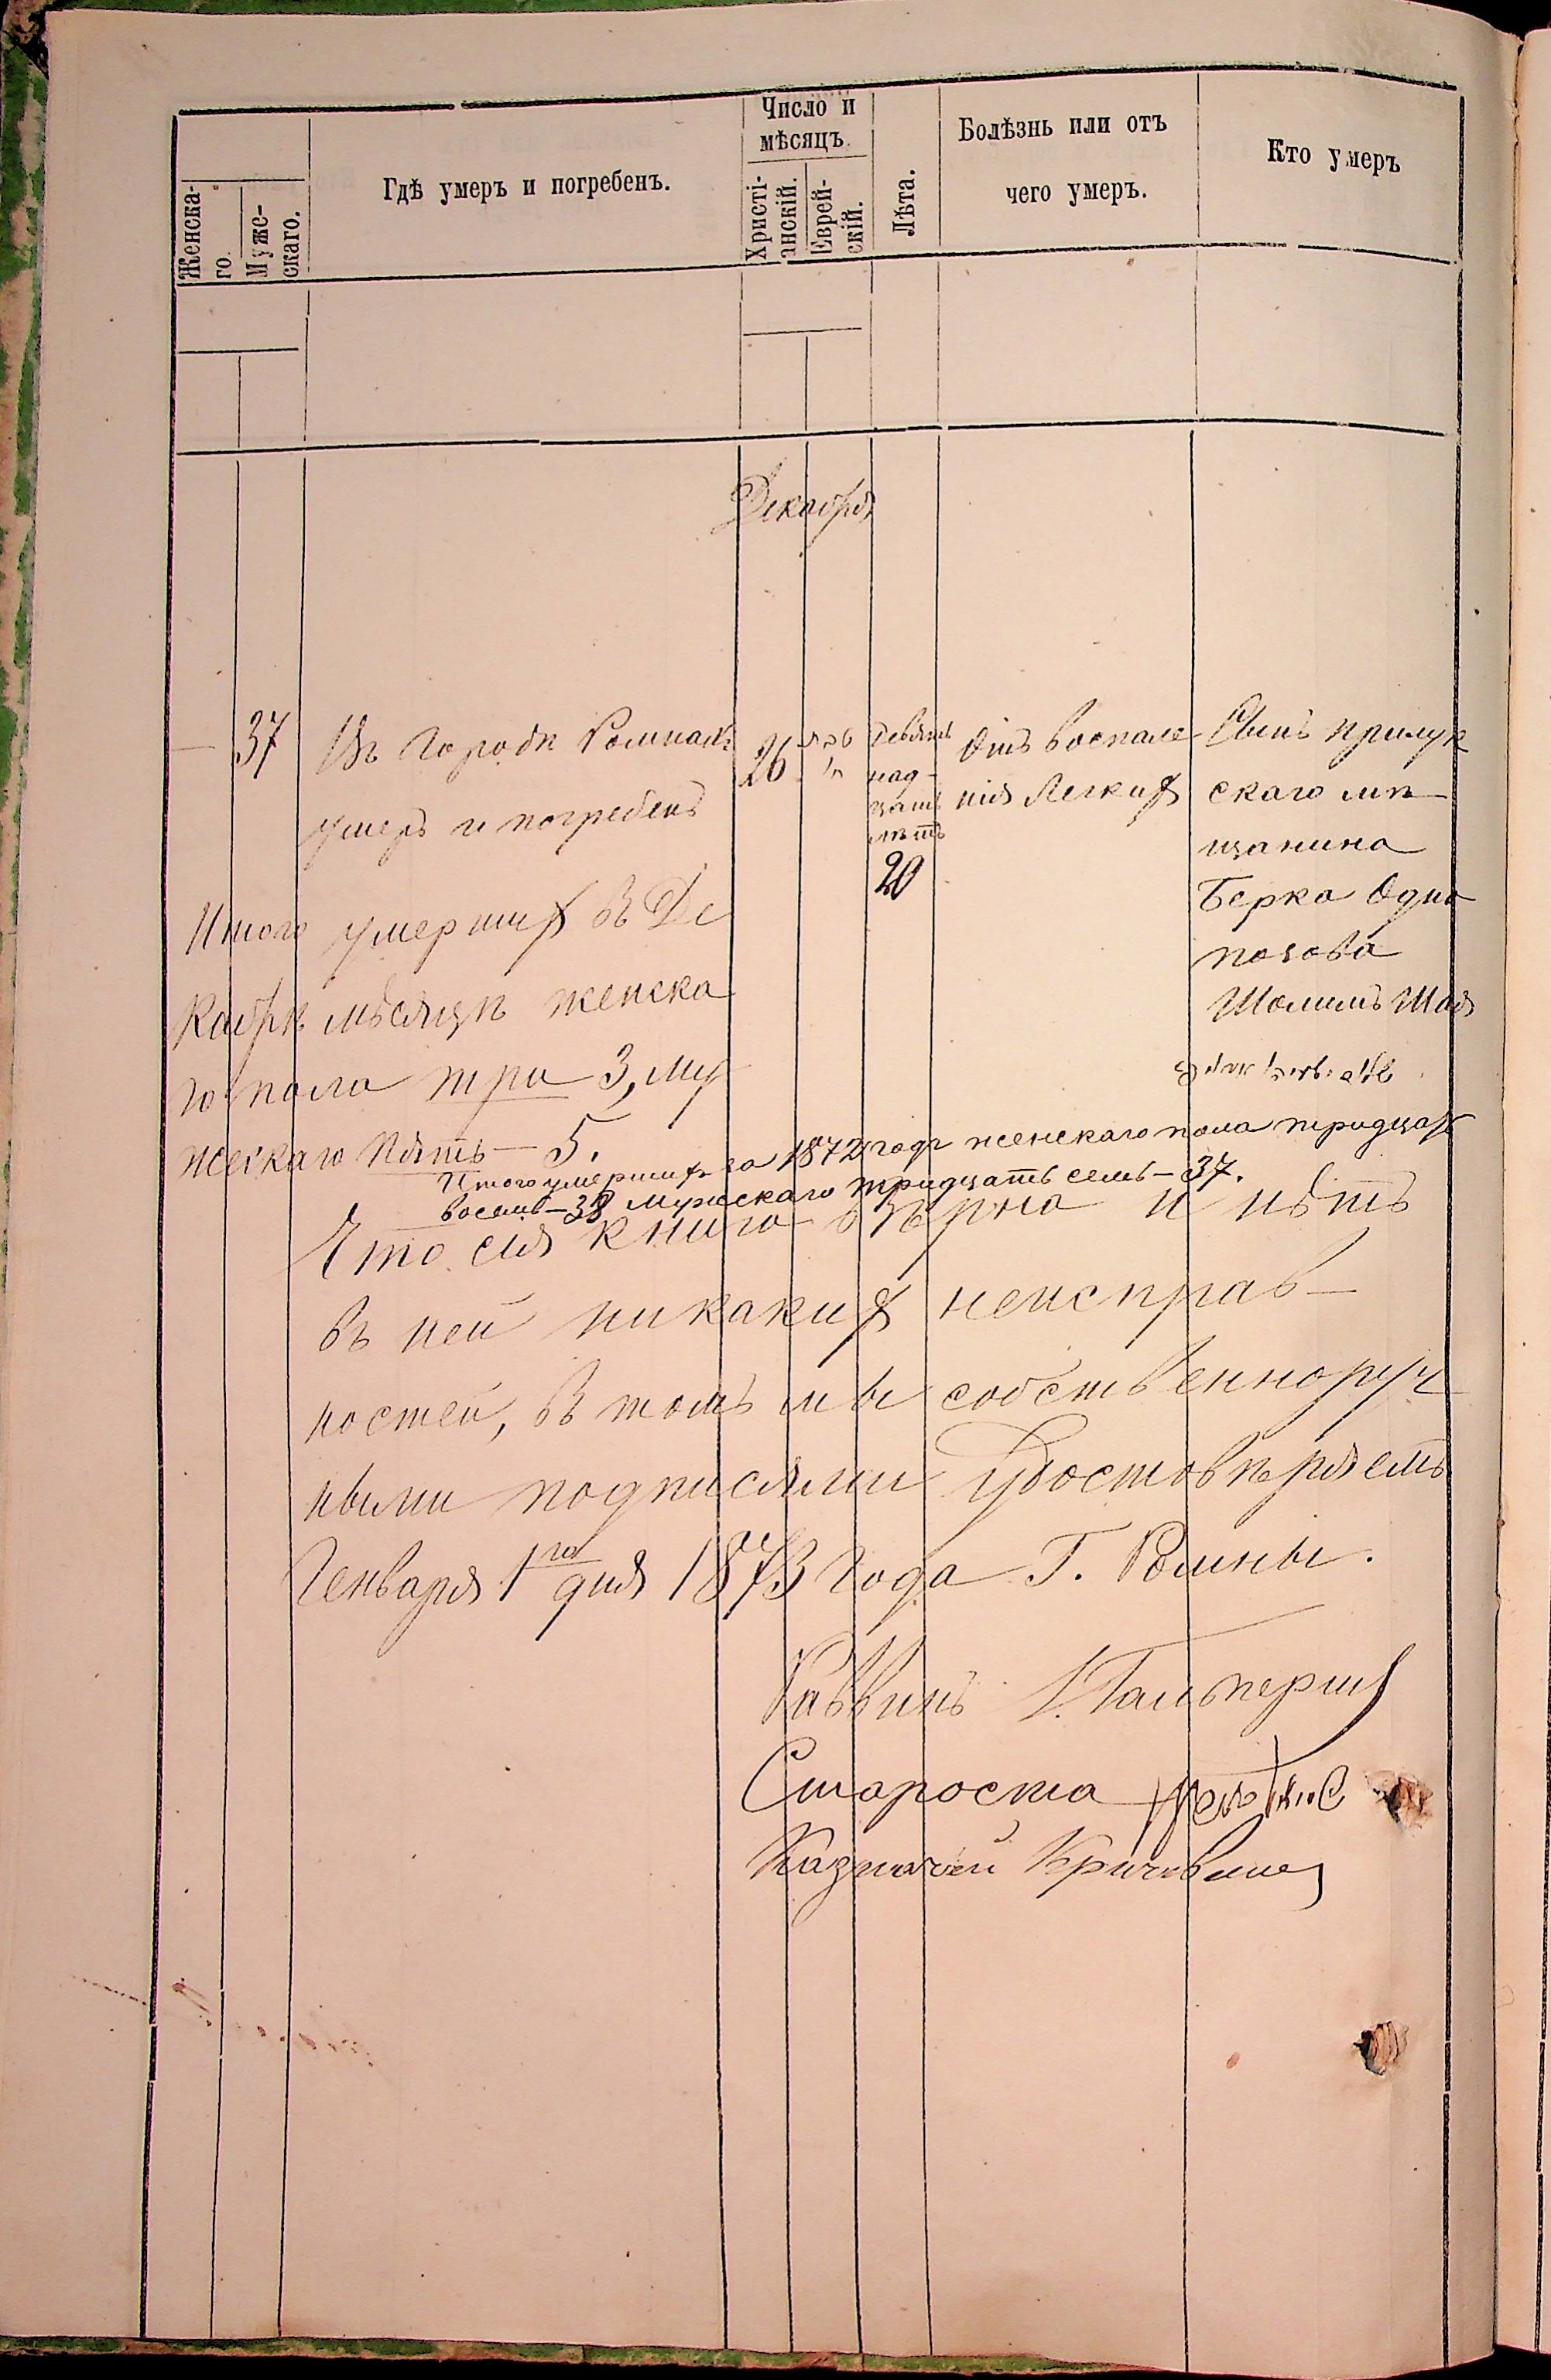 Женска-
го
Муже-
скаго.
Гдѣ умеръ и погребенъ.
Число и
мѣсяцъ.
Христі-
анскій.
Еврей-
скій.
Лѣта.
Болѣзнь или отъ
чего умеръ.
Кто умеръ
Декабря
— 37
Въ городѣ Ромнахъ
умеръ и погребенъ
26
девят
над-
цать
лѣтъ
20
Отъ воспале
нія Легких
Сынъ прилук
скаго мѣ
щанина
Берка Одно
позова
Шоломъ Шая
Итого умерших въ Де
кабрѣ мѣсяцѣ женска
го пола три 3, му
жескаго пять — 5.
Итого умерших за 1872 годъ женскаго пола тридцать
восемь — 38 мужскаго тридцать семь — 37.
Что сія книга вѣрна и нѣтъ
въ ней никаких неисправ-
ностей, въ томъ мы собственноруч
ными подписями удостовѣряемъ
Генваря 1го дня 1873 года Г. Ромны.
Раввинъ Гальперин
Староста
Казначей